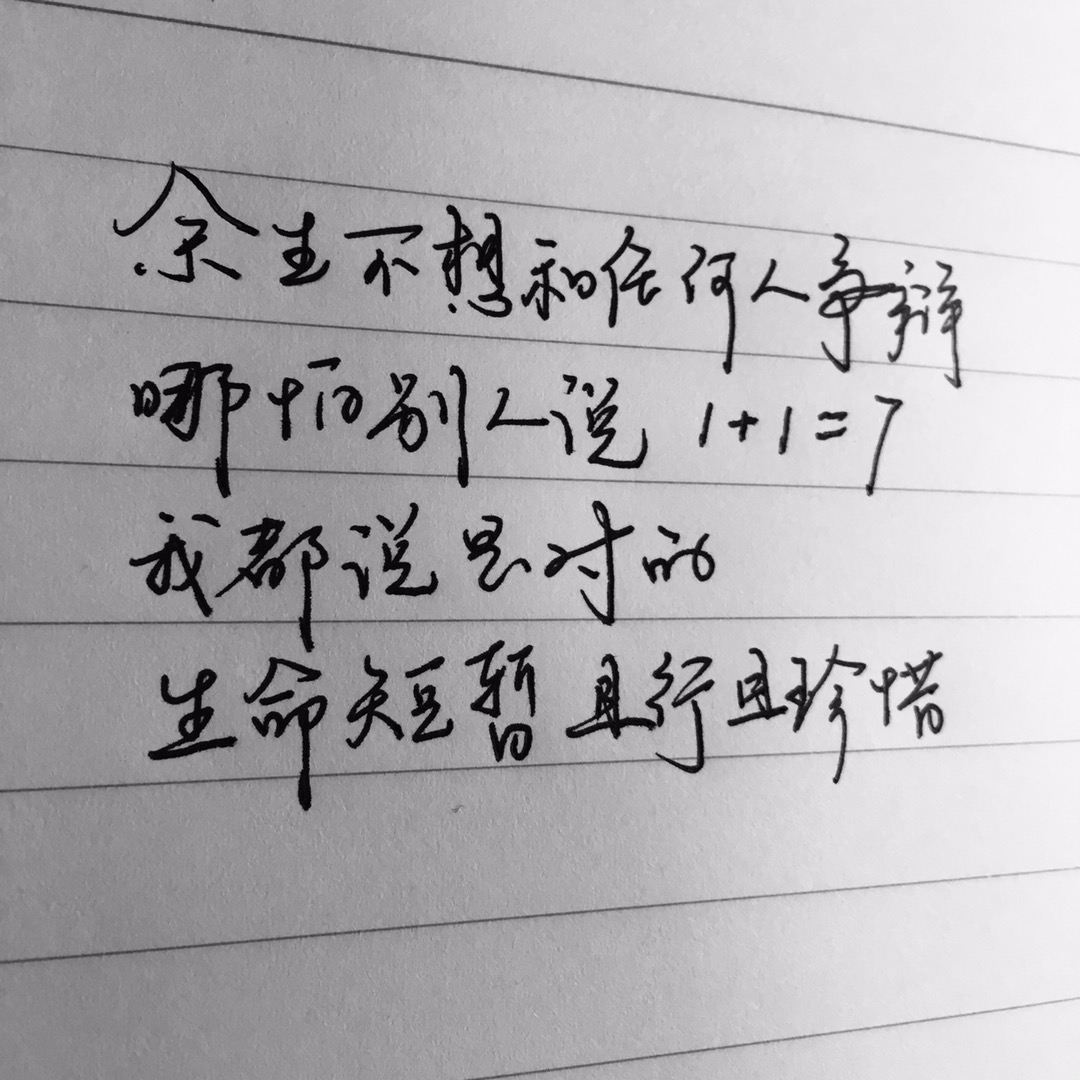 余生不想和任何人争辩
哪怕别人说 1+1=7
我都说是对的
生命短暂且行且珍惜